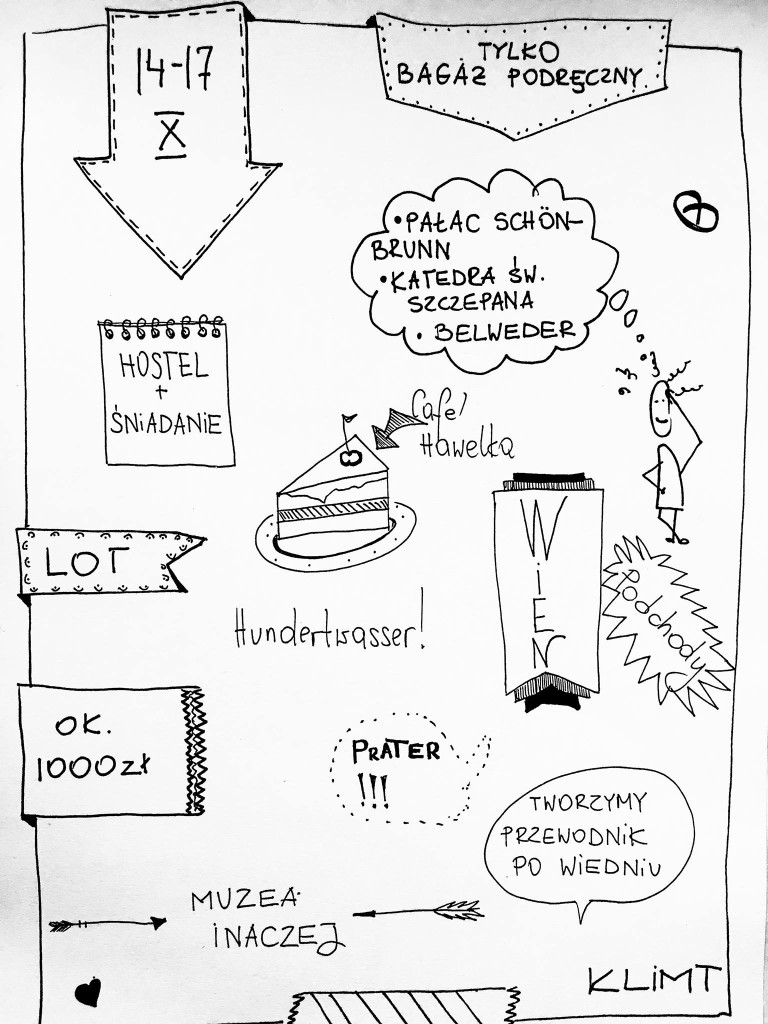 14-17
X
TYLKO
BAGAŻ PODRĘCZNY
• PAŁAC SCHÖN-
BRUNN
• KATEDRA ŚW.
SZCZEPANA
• BELWEDER
HOSTEL
+
ŚNIADANIE
Café
Hawełka
WIEN
LOT
Podchody
Hundertwasser!
OK.
1000 zł
PRATER
!!!
TWORZYMY
PRZEWODNIK
PO WIEDNIU
MUZEA
INACZEJ
KLIMT